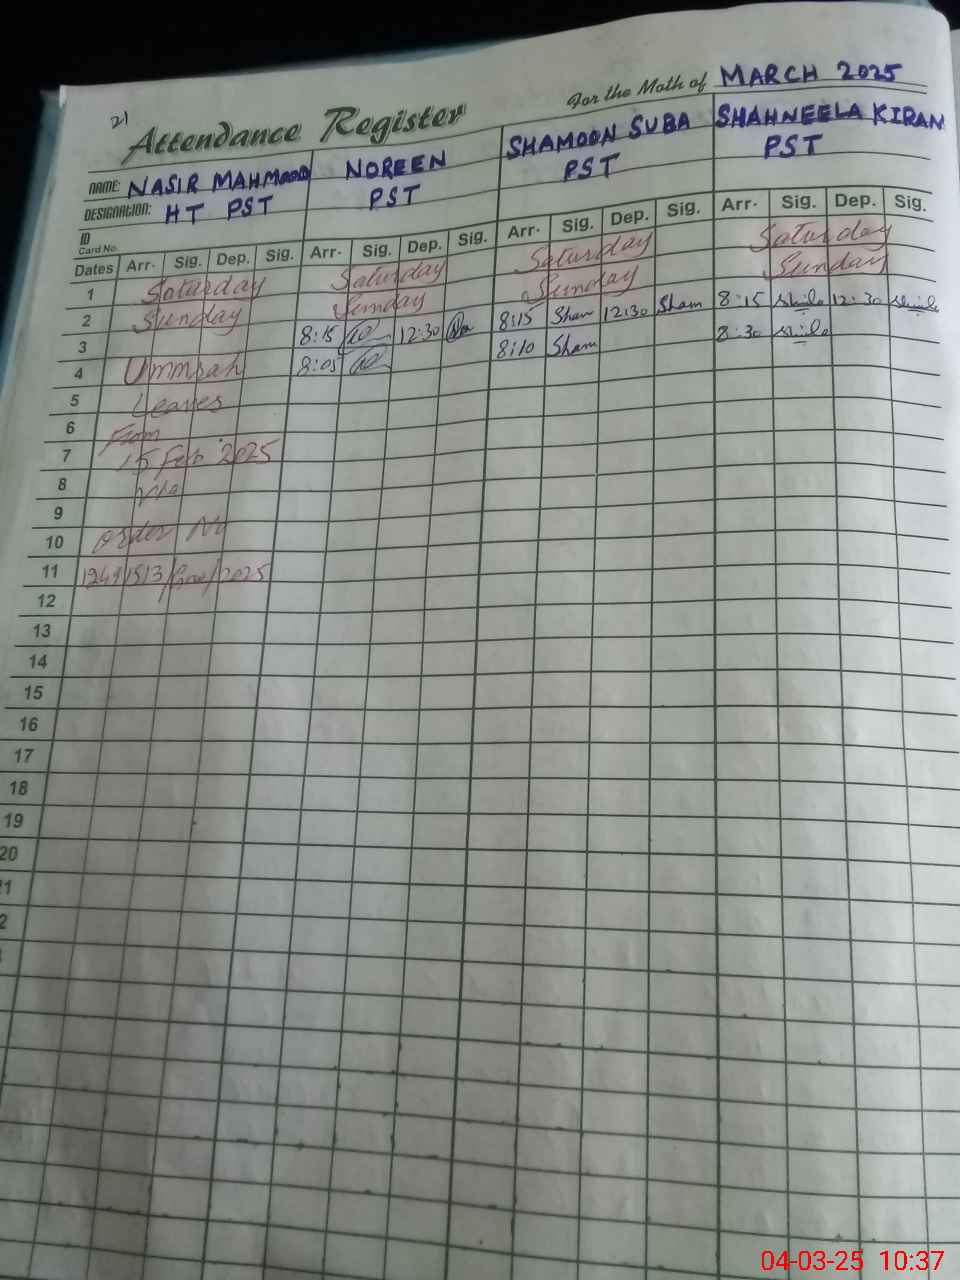 21
Attendance Register For the Moth of MARCH 2025
NAME: NASIR MAHMOOD NOREEN SHAMOON SUBA SHAHNEELA KIRAN
DESIGNATION: HT PST PST PST PST
ID Card No.
Dates Arr. Sig. Dep. Sig. Arr. Sig. Dep. Sig. Arr. Sig. Dep. Sig. Arr. Sig. Dep. Sig.
1 Saturday Saturday Saturday Saturday
2 Sunday Sunday Sunday Sunday
3 8:15 12:30 8:15 Sham 12:30 Sham 8:15 12:30
4 Ummrah 8:05 8:10 Sham 8:30
5 Leaves
6 From
7 15 Feb 2025
8
9
10 Order No
11 2025
12
13
14
15
16
17
18
19
20
04-03-25 10:37